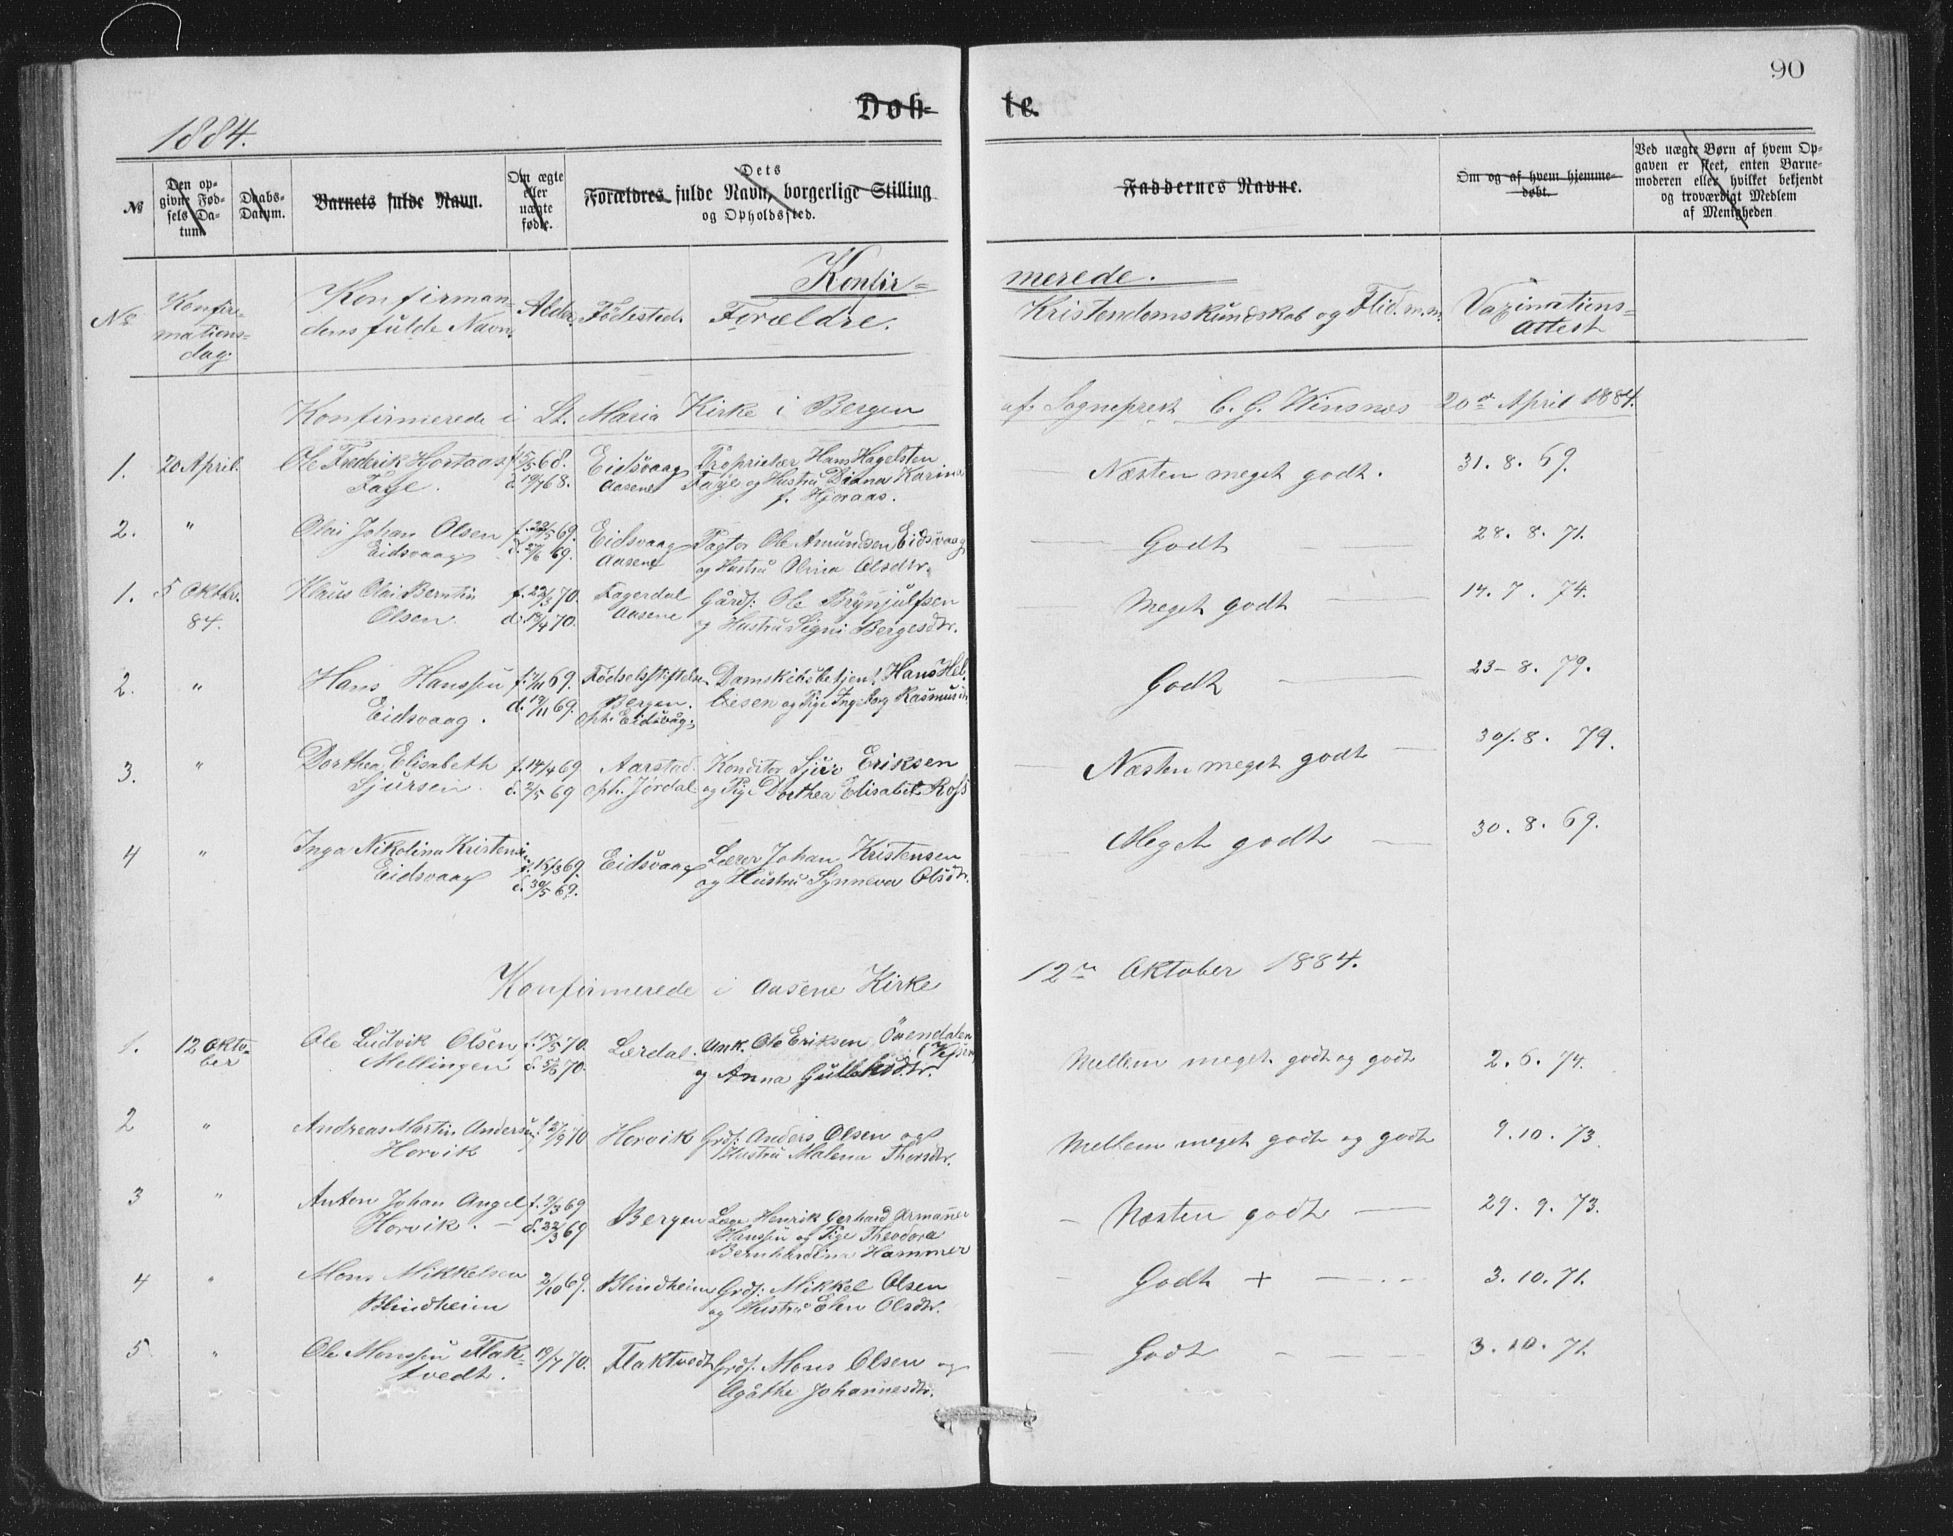 90
Døb-
te.
1884.
No
Den op-
givne Fød-
sels Da-
tum.
Daabs-
Datum.
Barnets fulde Navn.
Om ægte
eller
uægte
født.
Dets
Forældres fulde Navn, borgerlige Stilling
og Opholdssted.
Faddernes Navne.
Om og af hvem hjemme-
døbt.
Ved uægte Børn af hvem Op-
gaven er skeet, enten Barne-
moderen eller hvilket bekjendt
og troværdigt Medlem
af Menigheden
Konfir-
merede.
No
Konfir-
mations-
dag.
Konfirman-
dens fulde Navn.
Alder.
Fødested.
Forældre.
Kristendomskundskab og Flid m.m.
Vaxinations-
attest
Konfirmerede i St. Maria Kirke i Bergen
af Sogneprest C. G. Winsnes 20de April 1884.
1. 20 April. Ole Frederik Hjortaas f. 15/5 68. Eidsvaag Proprietær Hans Hagelsten
Faye. 68. Aasene Faye og Hustru Diana Karine
f. Hjoraas.
Næsten meget godt. 31. 8. 69.
2. " Olai Johan Olsen f. 22/5 69. Eidsvaag Pagtor Ole Amundsen Eidsvaag
Eidsvaag d. 27/6 69. Aasene og Hustru Olina Olsdtr.
Godt 28. 8. 71.
1. 5 Oktbr. Klaus Olai Berntin f. 22/3 70. Fagerdal Gårdf: Ole Brynjulfsen
84. Olsen d. 19/4 70. Aasene og Hustru Signi Bergesdtr.
Meget godt 14. 7. 74.
2. " Hans Hanssen 69. Fødselsstiftelsen Damskibsbetjent Hans Hel-
Eidsvaag. d. 19/11 69. Bergen. og Pige Ingeborg Rasmusdr
oph. Eidsvåg.
Godt 23-8. 79.
3. " Dorthea Elisabeth f. 14/4 69 Aarstad. Konditor Sjur Eriksen
Sjursen. d. 2/5 69 oph. Jordal og Pige Dorthea Elisabet Ross
Næsten meget godt 30. 8. 79.
4 " Inga Nikolina Kristense f. 15/3 69. Eidsvaag Lærer Johan Kristensen
Eidsvaag d. 30/5 69. og Hustru Synneva Olsdtr.
Meget godt 30. 8. 69.
Konfirmerede i Aasene Kirke
12te Oktober 1884.
1. 12 Okto- Ole Ludvik Olsen f. 15/5 70. Lærdal. Ank. Ole Eriksen Øvendalen
ber Mellingen d. 5/6 70. og Anna
Mellem meget godt og godt 2. 6. 74.
2 " Andreas Martin Andersen f. 27/9 70 Horvik Grdf: Anders Olsen og
Horvik Hustru Malena Thorsdtr.
Mellem meget godt og godt 9. 10. 73.
3 " Anton Johan Angel f. 2/3 69 Bergen Læge Henrik Gerhard Armauer
Horvik. d. 22/3 69 Hanssen og Pige Theodora
Bernhardina Hammer
Næsten godt 29. 9. 73.
4 " Mons Mikkelsen 2/10 69. Blindheim Grdf: Mikkel Olsen
Blindheim og Hustru Elen Olsdtr.
Godt + 3. 10. 71.
5 " Ole Monssen Flak- 19/7 70. Flaktvedt Grdf: Mons Olsen og
tvedt. Agåthe Johannesdtr.
Godt 3. 10. 71.